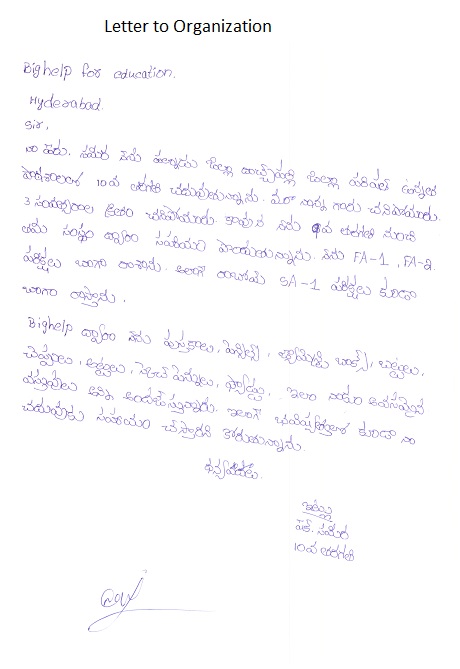 Letter to Organization
Bighelp for education.
Hyderabad.
Sir,
నా పేరు. సమీర నేను పల్నాడు జిల్లా జిల్లా పరిషత్ ఉన్నత
పాఠశాలలో 10వ తరగతి చదువుతున్నాను. మా నాన్న గారు చనిపోయారు.
3 సంవత్సరాల క్రితం చనిపోయారు. కావున నేను 9వ తరగతి నుండి
ఈ సంస్థ ద్వారా సహాయం పొందుతున్నాను. నేను FA-1, FA-2
పరీక్షలు బాగా రాశాను. అలాగే రాబోయే SA-1 పరీక్షలు కూడా
బాగా రాస్తాను.
Bighelp ద్వారా నేను పుస్తకాలు, పెన్సిల్స్, జ్యామెట్రి బాక్స్, బట్టలు,
చెప్పులు, అట్టలు, స్కెచ్ పెన్నులు, ఇలా నాకు అవసరమైన
వస్తువులు అన్ని అందజేస్తున్నారు. ఇలాగే భవిష్యత్తులో కూడా నా
చదువుకు సహాయం చేస్తారని కోరుతున్నాను.
ధన్యవాదాలు.
ఇట్లు
షేక్. సమీర
10వ తరగతి